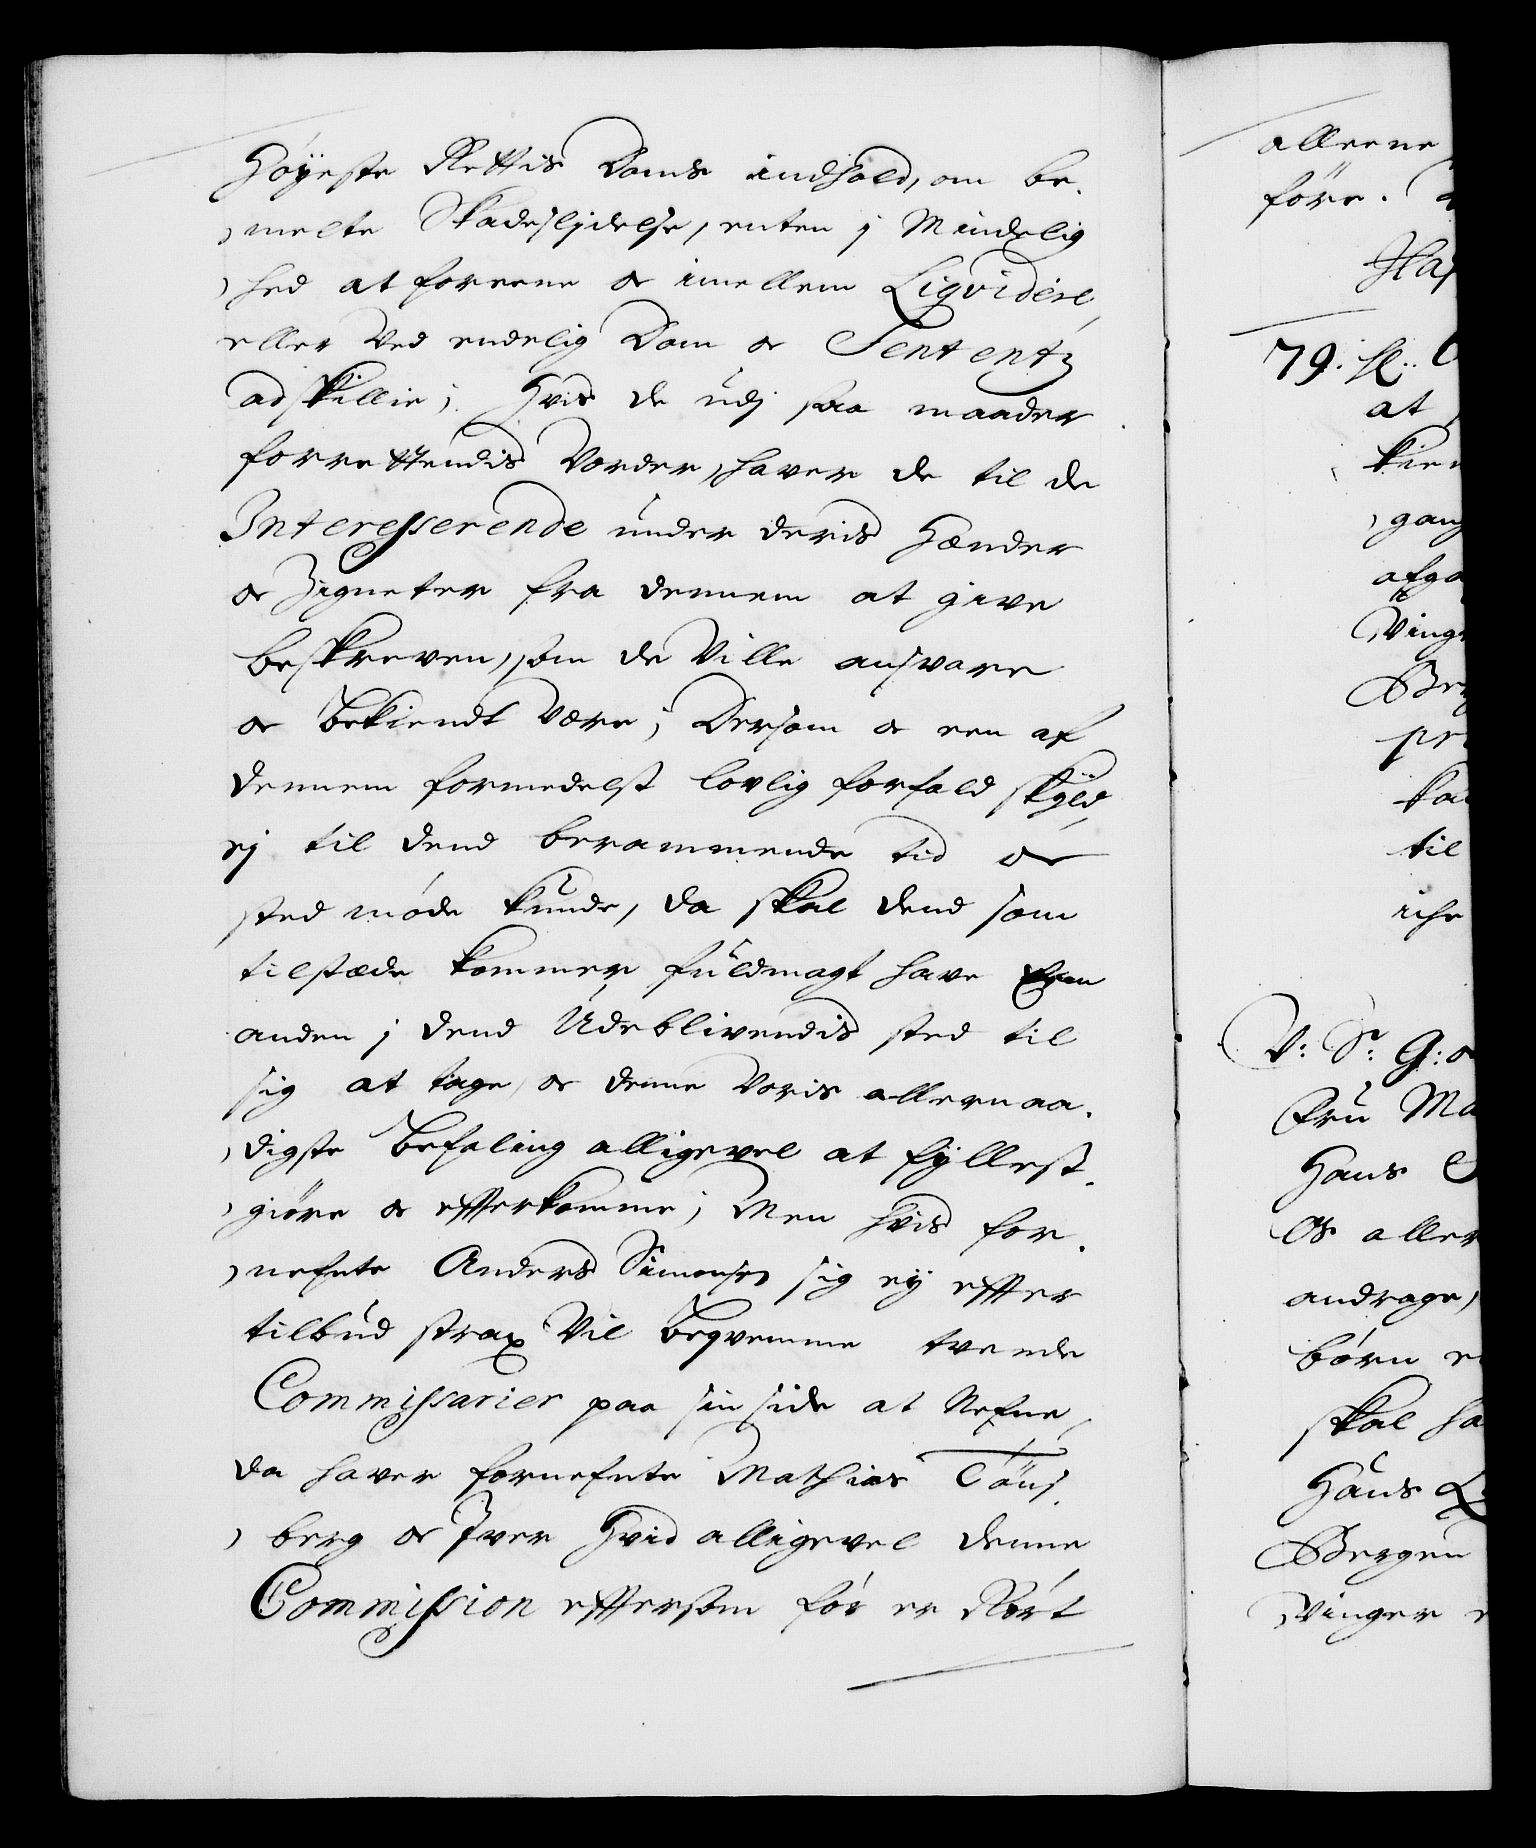 Høyeste Rettis Doms indhold, om be-
melte Skadeslidelse, enten j Mindelig
hed at foreene oc imellem Liqvidere,
eller Ved endelig Dom oc Sententz
adskillie; Hvis de udj saa maader
forrettendis Vorder, haver de til de
Interesserende under deris Hænder
oc Zigneter fra dennem at give
beskreven, som de Ville ansvare
oc bekiendt være; Dersom oc een af
dennem formedelst lovlig forfald skÿld,
ej til dend berammende tid oc
sted møde kunde, da skal dend som
tilstæde kommer fuldmagt have een
anden j dend Udeblivendis sted til
sig at tage, oc denne Voris allernaa-
digste Befaling alligevel at fyllest-
giøre oc efterkomme; Men hvis for-
nefnte Anders Simensen sig ey effter
tilbud strax Vil beqvemme tvende
Commissarier paa sin side at Nefne,
da haver fornefnte Mathias Töns-
berg oc Iver Hvid alligevel denne
Commission effersom før er Rørt
alleene
føre.
79.
at
gang
til
V: Sr: G: o
Fru Ma
Hans
Os aller
andrage,
børn
skal ha
Hans
Bergen
Vinger